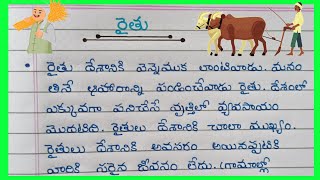 రైతు
• రైతు దేశానికి వెన్నెముక లాంటివాడు. మనం
తినే ఆహారాన్ని పండించేవాడు రైతు. దేశంలో
ఎక్కువగా పనిచేసే వృత్తిలో వ్యవసాయం
మొదటిది. రైతులు దేశానికి చాలా ముఖ్యం.
రైతులు దేశానికి అవసరం అయినప్పటికి
వారికి సరైన జీవనం లేదు. గ్రామాల్లో